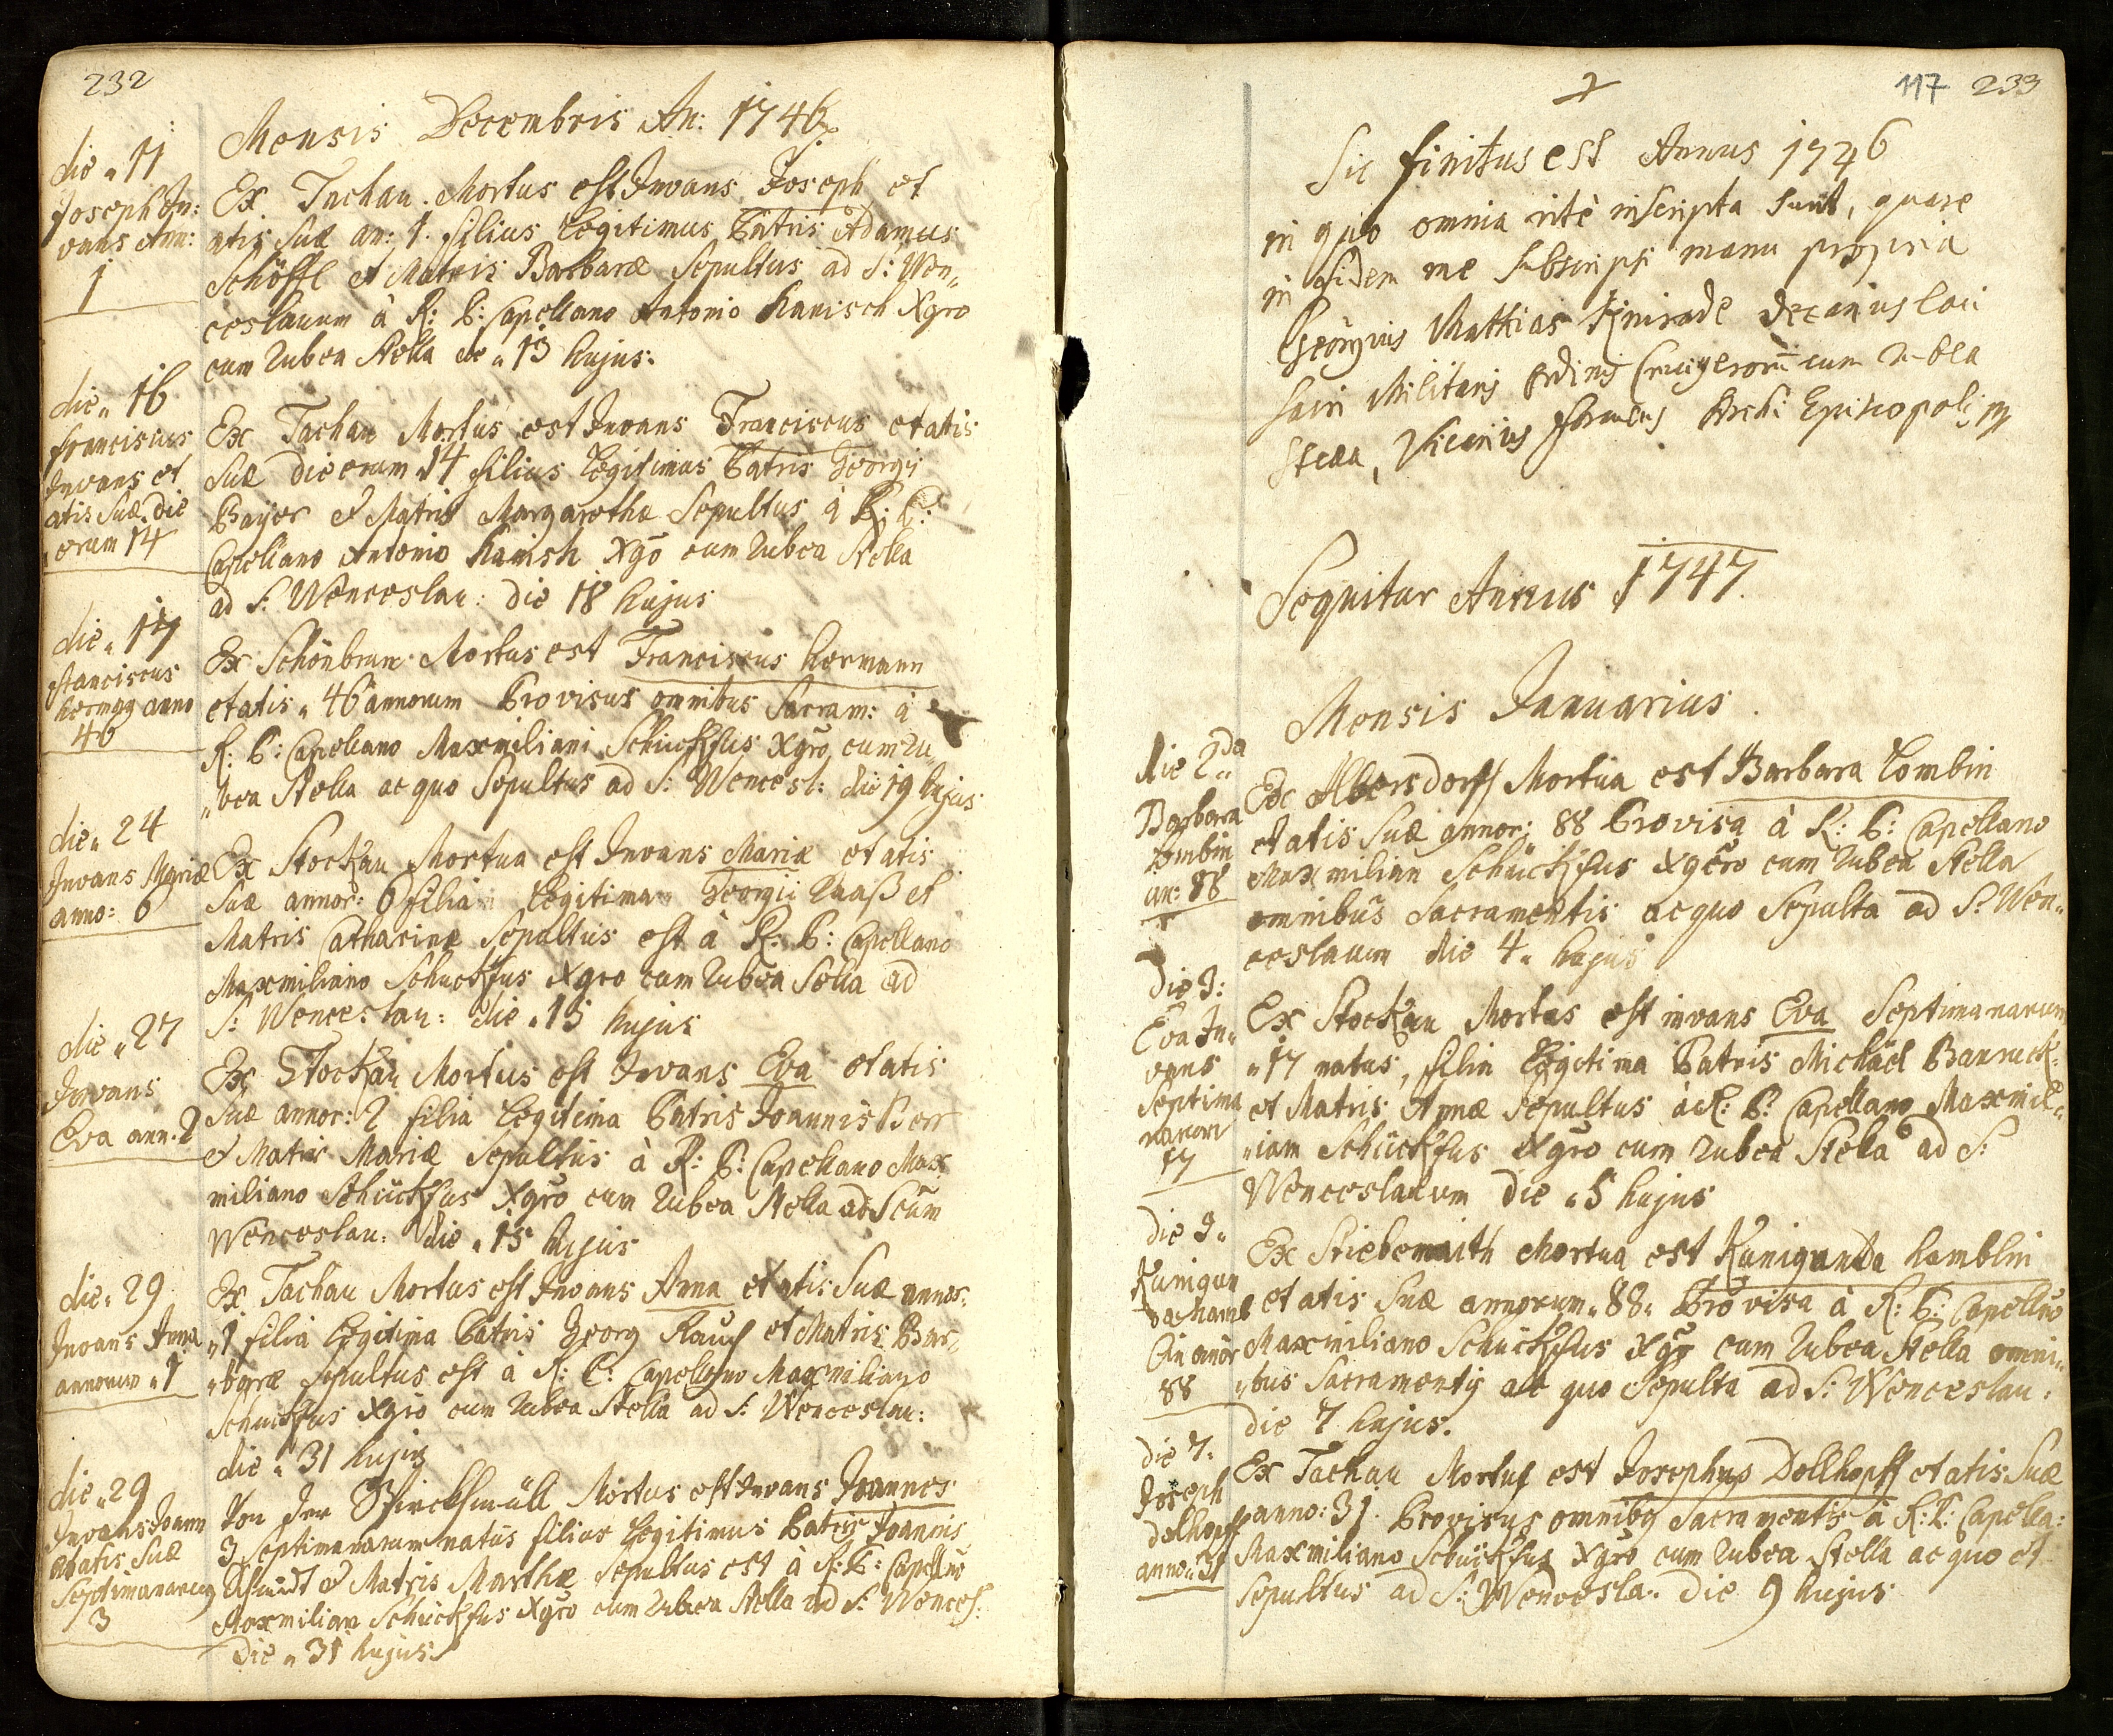 232
Mensis Decembris An: 1746
die „ 11
Joseph In:
vans Ann:
1
Ex Tachau Mortus est Invans Joseph et
atis Suæ an: 1. filius Legitimus Patris Adamus
Schöffl et Matris Barbaræ Sepultus ad S: Wen„
ceslaum à R: P: Capellano Antonio Hanisch Xgro
cum Rubea Stella die „ 13 hujus.
die „ 16
Franciscus
Invans et
atis Suæ die
erum 14
Ex Tachau Mortus est Invans Franciscus etatis
Suæ dieerum 14 filius Legitimus Patris Georgij
Bayer et Matris Margarethæ Sepultus à R: P:
Capellano Antonio Hanish Xgō cum Rubea Stella
ad S: Wenceslau: die 18 hujus
die „ 17
Franciscus
hermaṅ anno
46
Ex Schönbrun Mortus est Franciscus hermann
etatis „ 46 annorum Provisus omnibus Sacram: à
R: P: Capellano Maxmiliani Schückfus Xgro cum Ru„
„bea Stella ac quo Sepultus ad S: Wencesl: die 19 hujus
die „ 24
Invans Mariæ
anno: 6
Ex Stockau Mortua est Invans Mariæ etatis
Suæ annor: 6 filia Legitima Georgii Raaß et
Matris Catharinæ Sepultus est à R: P: Capellano
Maxmiliano Schuckfus Xgro cum Rubea Stella ad
S: Wenceslau: die „ 15 hujus
die „ 27
Invans
Eva ann. 2
Ex Stockau Mortus est Invans Eva etatis
Suæ annor: 2 filia Legitima Patris Joannis Berr
et Matris Mariæ Sepultus à R: P: Capellano Max
miliano Schückfus Xgro cum Rubea Stella ad Scum
Wenceslau: die „ 15 hujus
die „ 29
Invans Anna
annorum „ 1
Ex Tachau Mortus est Invans Anna etatis Suæ annor:
„ 1 filia Legitima Patris Georg Rauch et Matris Bar„
„baræ Sepultus est à R: P: Capellano Maxmiliano
Schuckfus Xgro cum Rubea Stella ad S: Wenceslau:
die „ 31 hujus
die „ 29
Invans Joann
etatis Suæ
Septimanarum
3
Von der Mortus est Invans Joannes
3 Septimanarum natus filius Legitimus Patris Joannis
Schmidt et Matris Marthæ Sepultus est à R: P: Capellno
Maxmilian Schückfus Xgro cum Rubea Stella ad S: Wences:
Die „ 31 hujus
117 233
Sic finitus est Annus 1746
in quo omnia ritè inscripta sunt, quare
in fidem me subscripsi manu propria
Georgius Matthias decanus loci
Sacri Militaris Ordinis Crucigerorū cum Rubea
Stella, Vicarius foraneus Archi Episcopolis mp
Sequitur Annus 1747.
Mensis Januarius.
die 2da
Barbara
Lombin
an: 88
Ex Albersdorff Mortua est Barbara Lombin
etatis Suæ annor: 88 Provisa à R: P: Capellano
Maxmilian Schückfus Xgero cum Rubea Stella
omnibus Sacramentis ac quo Sepulta ad S: Wen„
ceslaum die 4 „ hujus
Die 3:
Eva In„
vans
Septima
narum
17
Ex Stockau Mortus est invans Eva Septimanarum
„ 17 natus, filia Legitima Patris Michäel Banruck:
et Matris Annæ Sepultus à R: P: Capellano Maxmil„
„iam Schückfus Xgro cum Rubea Stella ad S:
Wenceslaum die „ 5 hujus
Die 3 „
Kunigun
da Hamb
lin anor
88
Ex Stiebenraith Mortua est Kunigunda hamblin
etatis Suæ annorum „ 88 „ Provisa à R: P: Capellno
Maxmiliano Schückfus Xgr cum Rubea Stella omni„
„bus Sacramentis ac quo Sepulta ad S: Wenceslau:
die 7 hujus.
die 7.
Joseph
dolhopff
anno: 31
Ex Tachau Mortus est Josephus Dollhopff etatis Suæ
anno: 31. Provisus omnibus Sacramentis à R: P: Capella:
Maxmiliano Schückfus Xgro cum Rubea Stella ac quo et
Sepultus ad S: Wenceslau: die 9 hujus